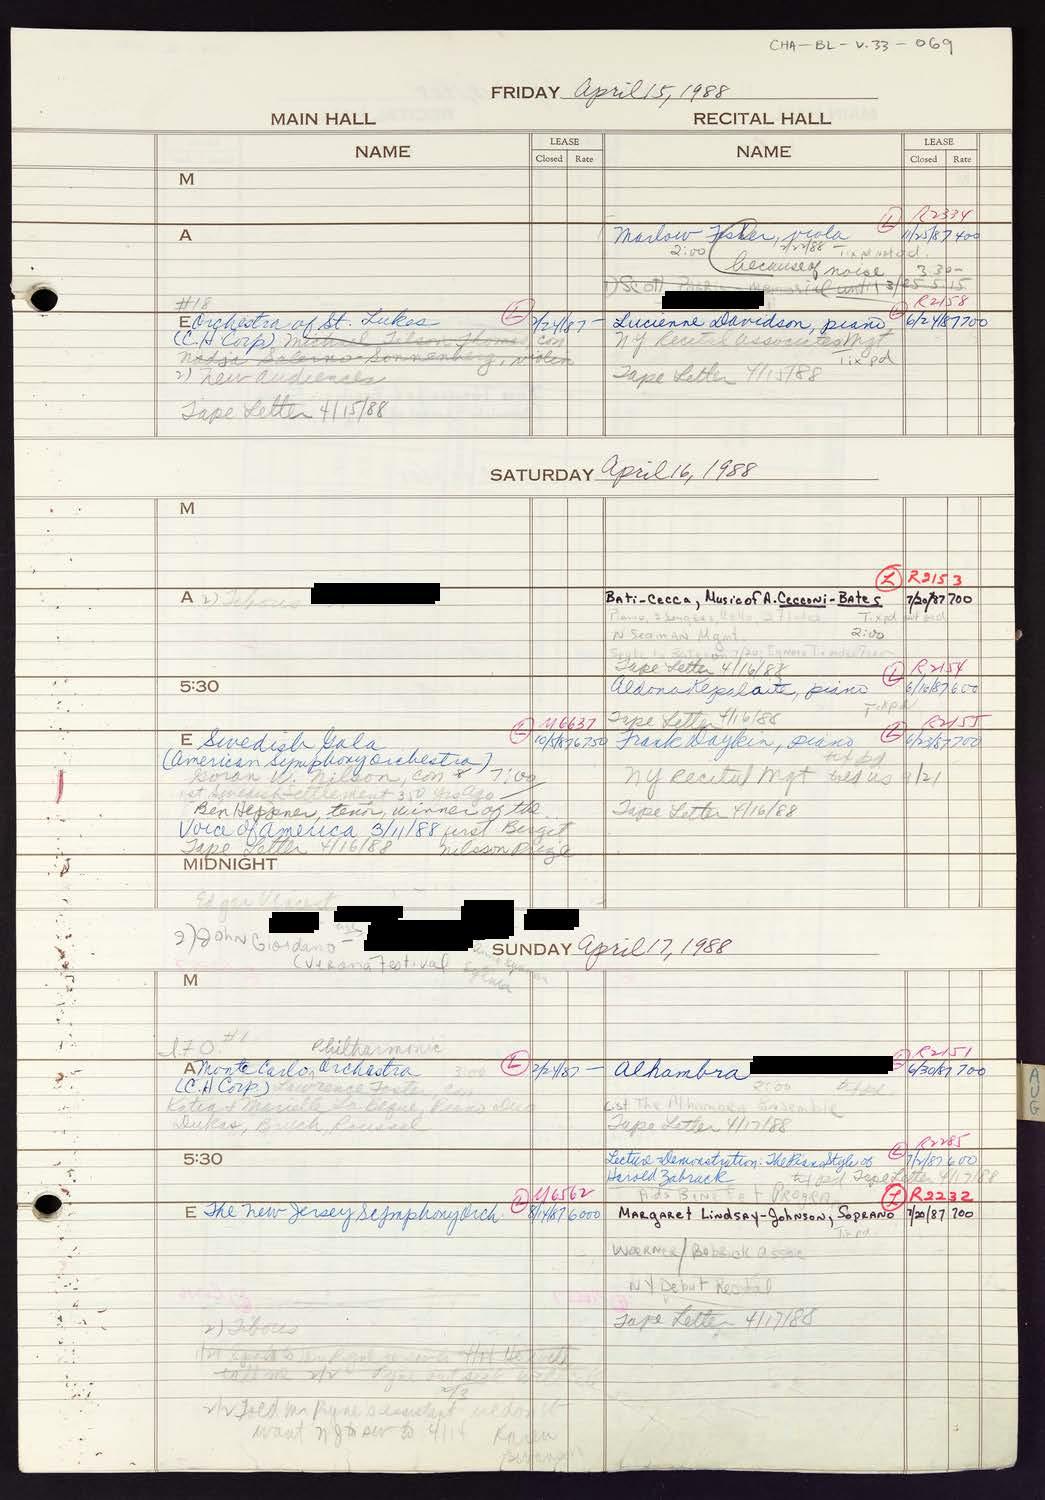 CHA-BL-V.33-069
FRIDAY April 15, 1988
MAIN HALL RECITAL HALL
NAME LEASE Closed Rate NAME LEASE Closed Rate
M
L R2334
A Marlow Fisher, viola 11/25/87 400
2:00 2/22/88 - Tix pd
because of noise 3 30-
#18 L
L R2158
E Orchestra of St. Lukes 2/24/87 - Lucienne Davidson, piano 6/24/87 700
(C.H Corp) Michael Tilson Thomas con NY Recital Associates Mgt
Nadja Salerno-Sonnenberg, violin Tix pd
2) New Audiences Tape Letter 4/15/88
Tape Letter 4/15/88
SATURDAY April 16, 1988
M
L R2153
A 2) Tibous Bati-Cecca, Music of A. Cecconi-Bates 7/20/87 700
Tix pd
N Seaman Mgmt. 2:00
Tape Letter 4/16/88
L R2154
5:30 Aldona Kepalaite, piano 6/16/87 600
Tix pd
Tape Letter 4/16/88
L M6637 L R2155
E Swedish Gala 10/5/87 6750 Frank Daykin, piano 6/23/87 700
(American Symphony Orchestra) tix pd
Goran W. Nilson, con 8 7:00 NY Recital Mgt tells us 9/21
1st Swedish Settlement 350 yrs ago
Ben Heppner, tenor, winner of the Tape Letter 4/16/88
Voice of America 3/11/88 first Birgit
Tape Letter 4/16/88 Nilsson Prize
MIDNIGHT
Edgar Vincent
2) John Giordano -
(Verona Festival
SUNDAY April 17, 1988
M
I.F.O. #1 Philharmonic
L L R2151
A Monte Carlo Orchestra 3:00 2/24/87 - Alhambra 6/30/87 700
(C.H Corp.) Lawrence Foster, con 2:00 tix pd.
Katia & Marielle La Beque, Piano Duo List The Alhambra Ensemble
Dukas, Bruch, Roussel Tape Letter 4/17/88
L R2285
5:30 Lecture-Demonstration: The Piano Style of 7/2/87 600
Harold Zabrack tix pd Tape Letter 4/17/88
Aids Benefit
L M6562 L R2232
E The New Jersey Symphony Orch. 8/14/87 6000 Margaret Lindsay-Johnson, Soprano 7/20/87 700
Tix pd.
Woerner/Bobrick Assoc
NY Debut Recital
Tape Letter 4/17/88
2) Tibous
2/2 Told Mr Pyne's assistant we don't
want NJ to
AUG